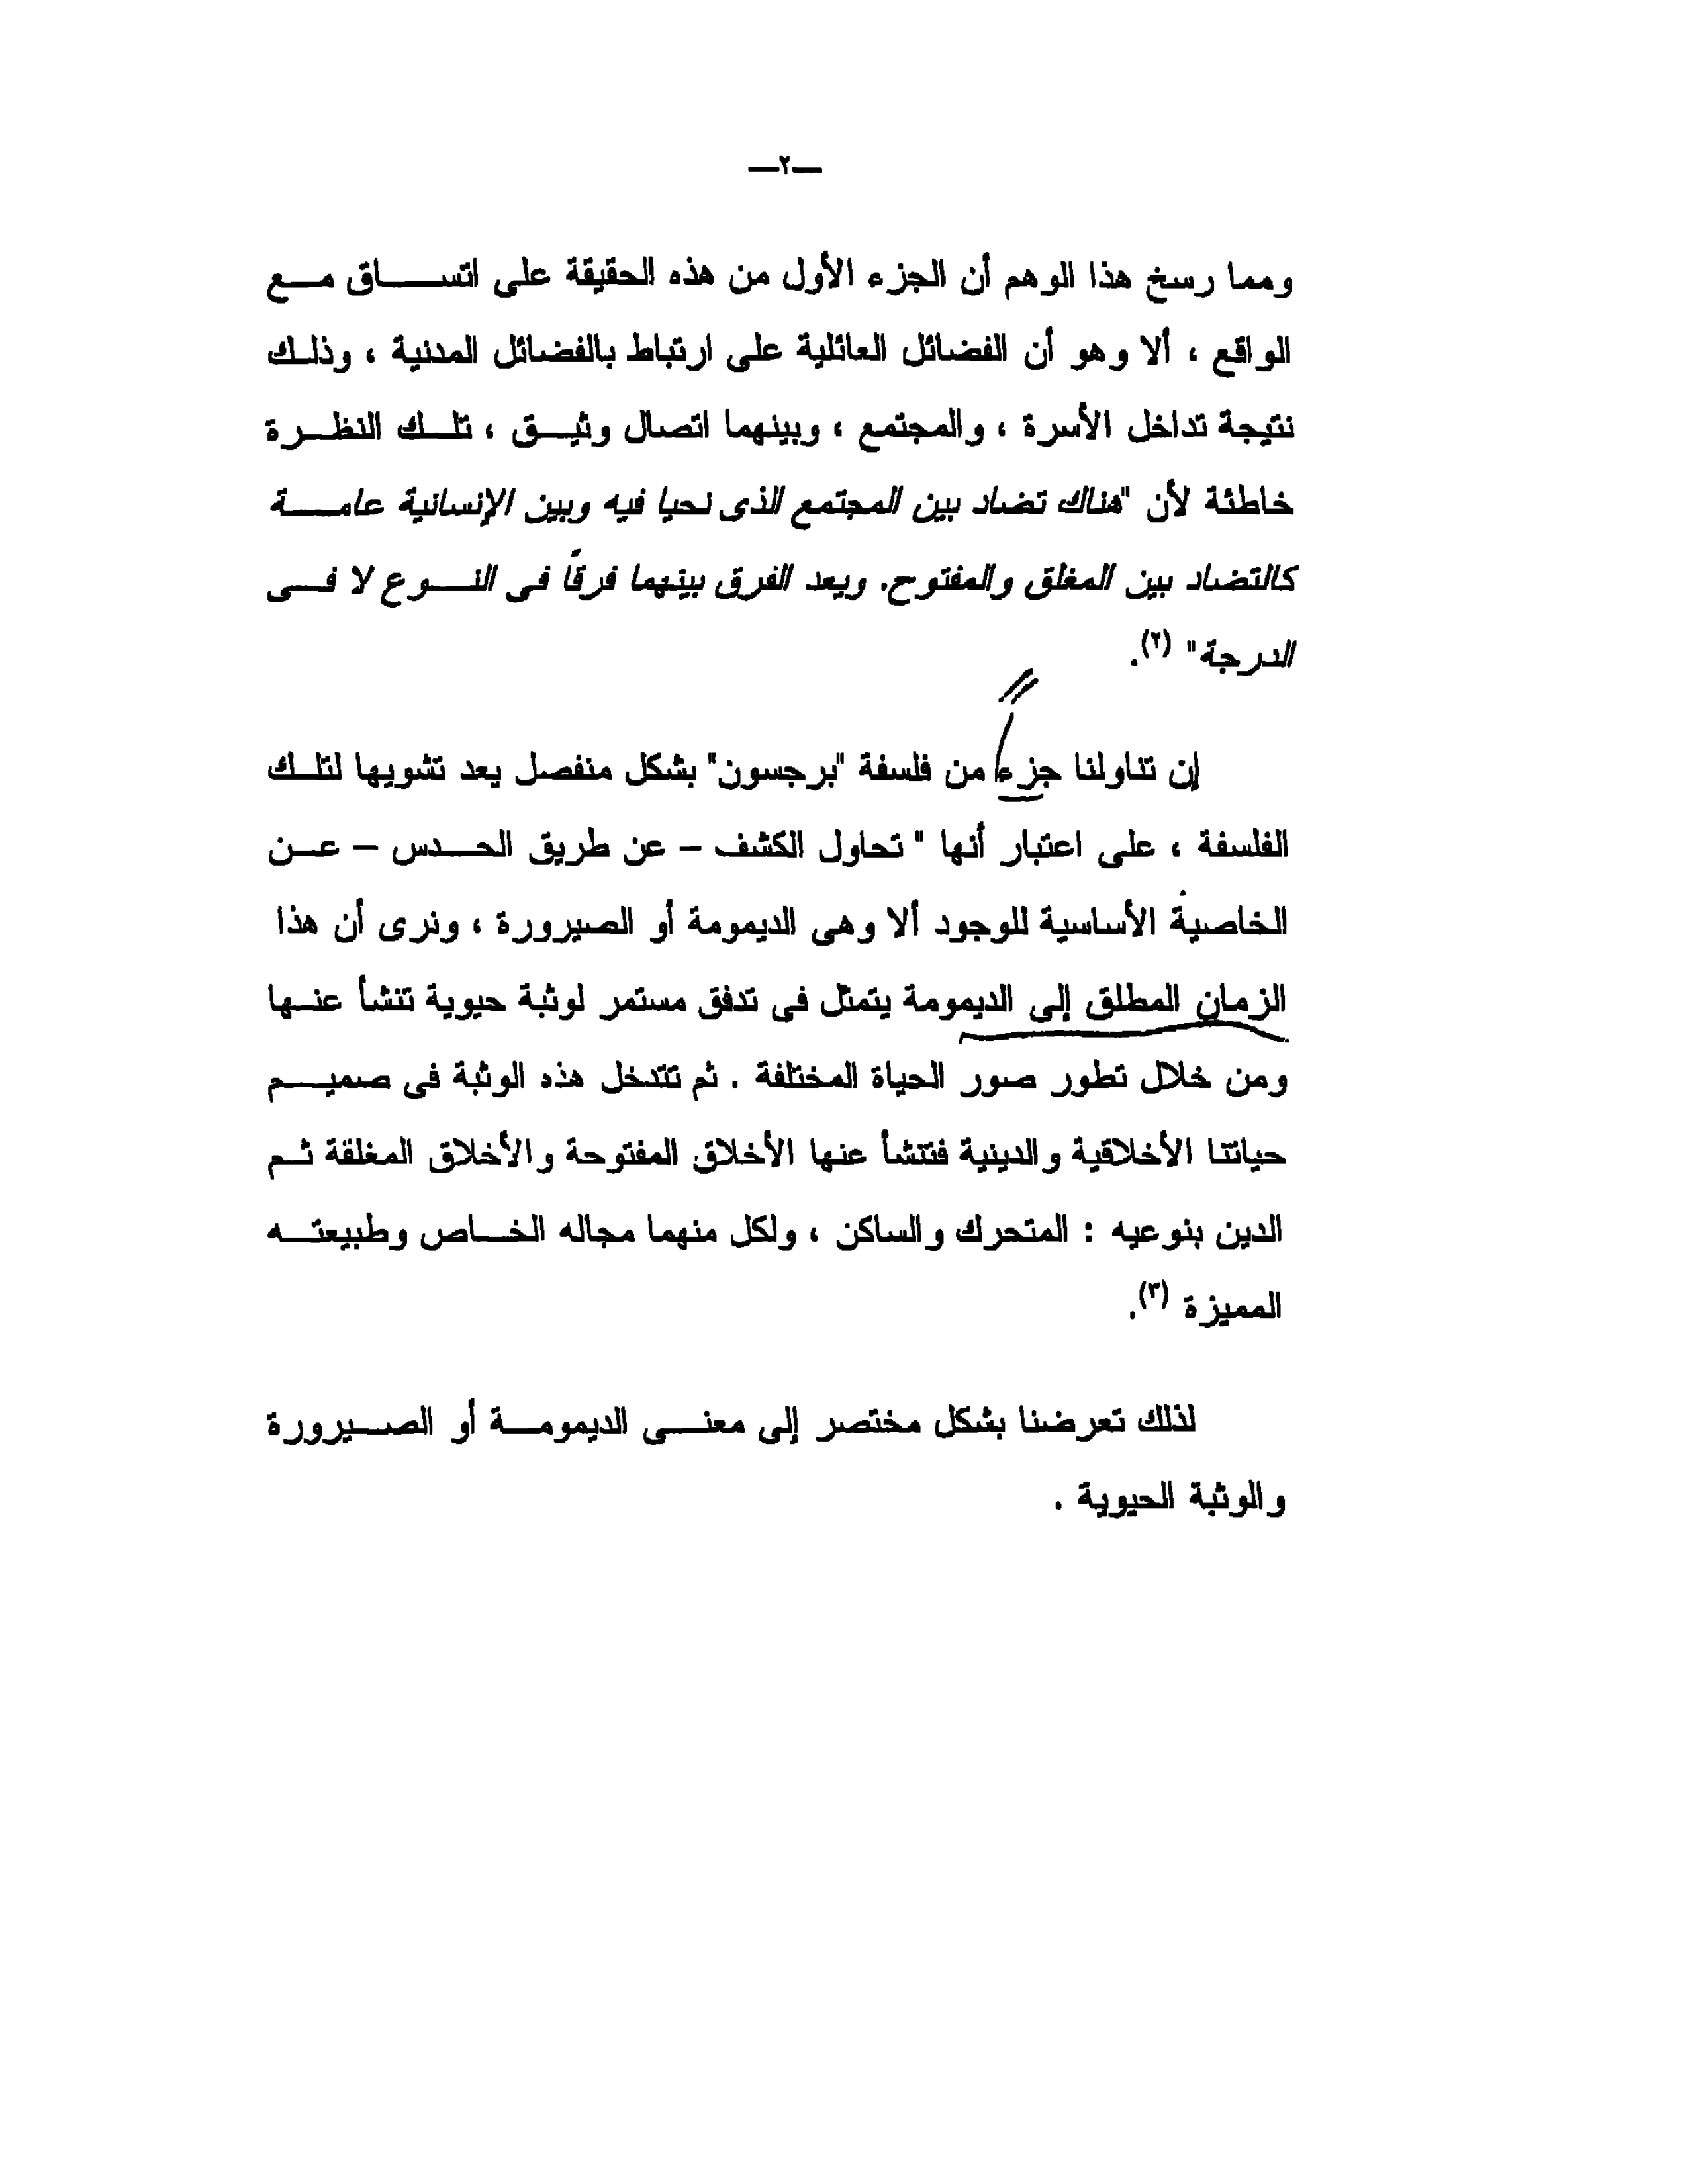 —٢—
ومما رسخ هذا الوهم أن الجزء الأول من هذه الحقيقة على اتساق مع
الواقع ، ألا وهو أن الفضائل العائلية على ارتباط بالفضائل المدنية ، وذلك
نتيجة تداخل الأسرة ، والمجتمع ، وبينهما اتصال وثيق ، تلك النظرة
خاطئة لأن "هناك تضاد بين المجتمع الذى نحيا فيه وبين الإنسانية عامة
كالتضاد بين المغلق والمفتوح. ويعد الفرق بينهما فرقاً فى النوع لا فى
الدرجة" (٢).
إن تناولنا جزء من فلسفة "برجسون" بشكل منفصل يعد تشويها لتلك
الفلسفة ، على اعتبار أنها " تحاول الكشف – عن طريق الحدس – عن
الخاصية الأساسية للوجود ألا وهى الديمومة أو الصيرورة ، ونرى أن هذا
الزمان المطلق إلى الديمومة يتمثل فى تدفق مستمر لوثبة حيوية تنشأ عنها
ومن خلال تطور صور الحياة المختلفة . ثم تتدخل هذه الوثبة فى صميم
حياتنا الأخلاقية والدينية فتنشأ عنها الأخلاق المفتوحة والأخلاق المغلقة ثم
الدين بنوعيه : المتحرك والساكن ، ولكل منهما مجاله الخاص وطبيعته
المميزة (٣).
لذلك تعرضنا بشكل مختصر إلى معنى الديمومة أو الصيرورة
والوثبة الحيوية .